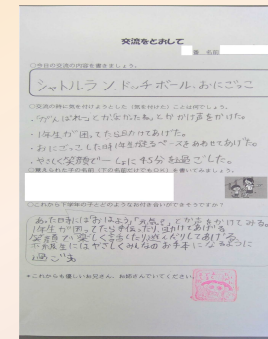 交流をとおして
番 名前
○今日の交流の内容を書きましょう。
シャトルラン ドッチボール、おにごっこ
○交流の時に気を付けようとした(気を付けた)ことは何でしょう。
・がんばれっとかよかったねってかけ声をかけた。
・1年生が困ってたら助けてあげた。
・おにごっこした時1年生走るペースをあわせてあげた。
・やさしく笑顔で一しょに45分過ごした。
○覚えられた子の名前(下の名前だけでもOK)を書いてみましょう。
○これから下学年の子とどのようなお付き合いができそうですか?
あった時には「おはよう」「元気?」とか声をかけてみる。
1年生が困ってたら手伝ったり助けてあげる
笑顔で楽しく話したり遊んだりしてあげる
下級生にはやさしくみんなのお手本になるように
過ごす
*これからも優しいお兄さん、お姉さんでいてください。